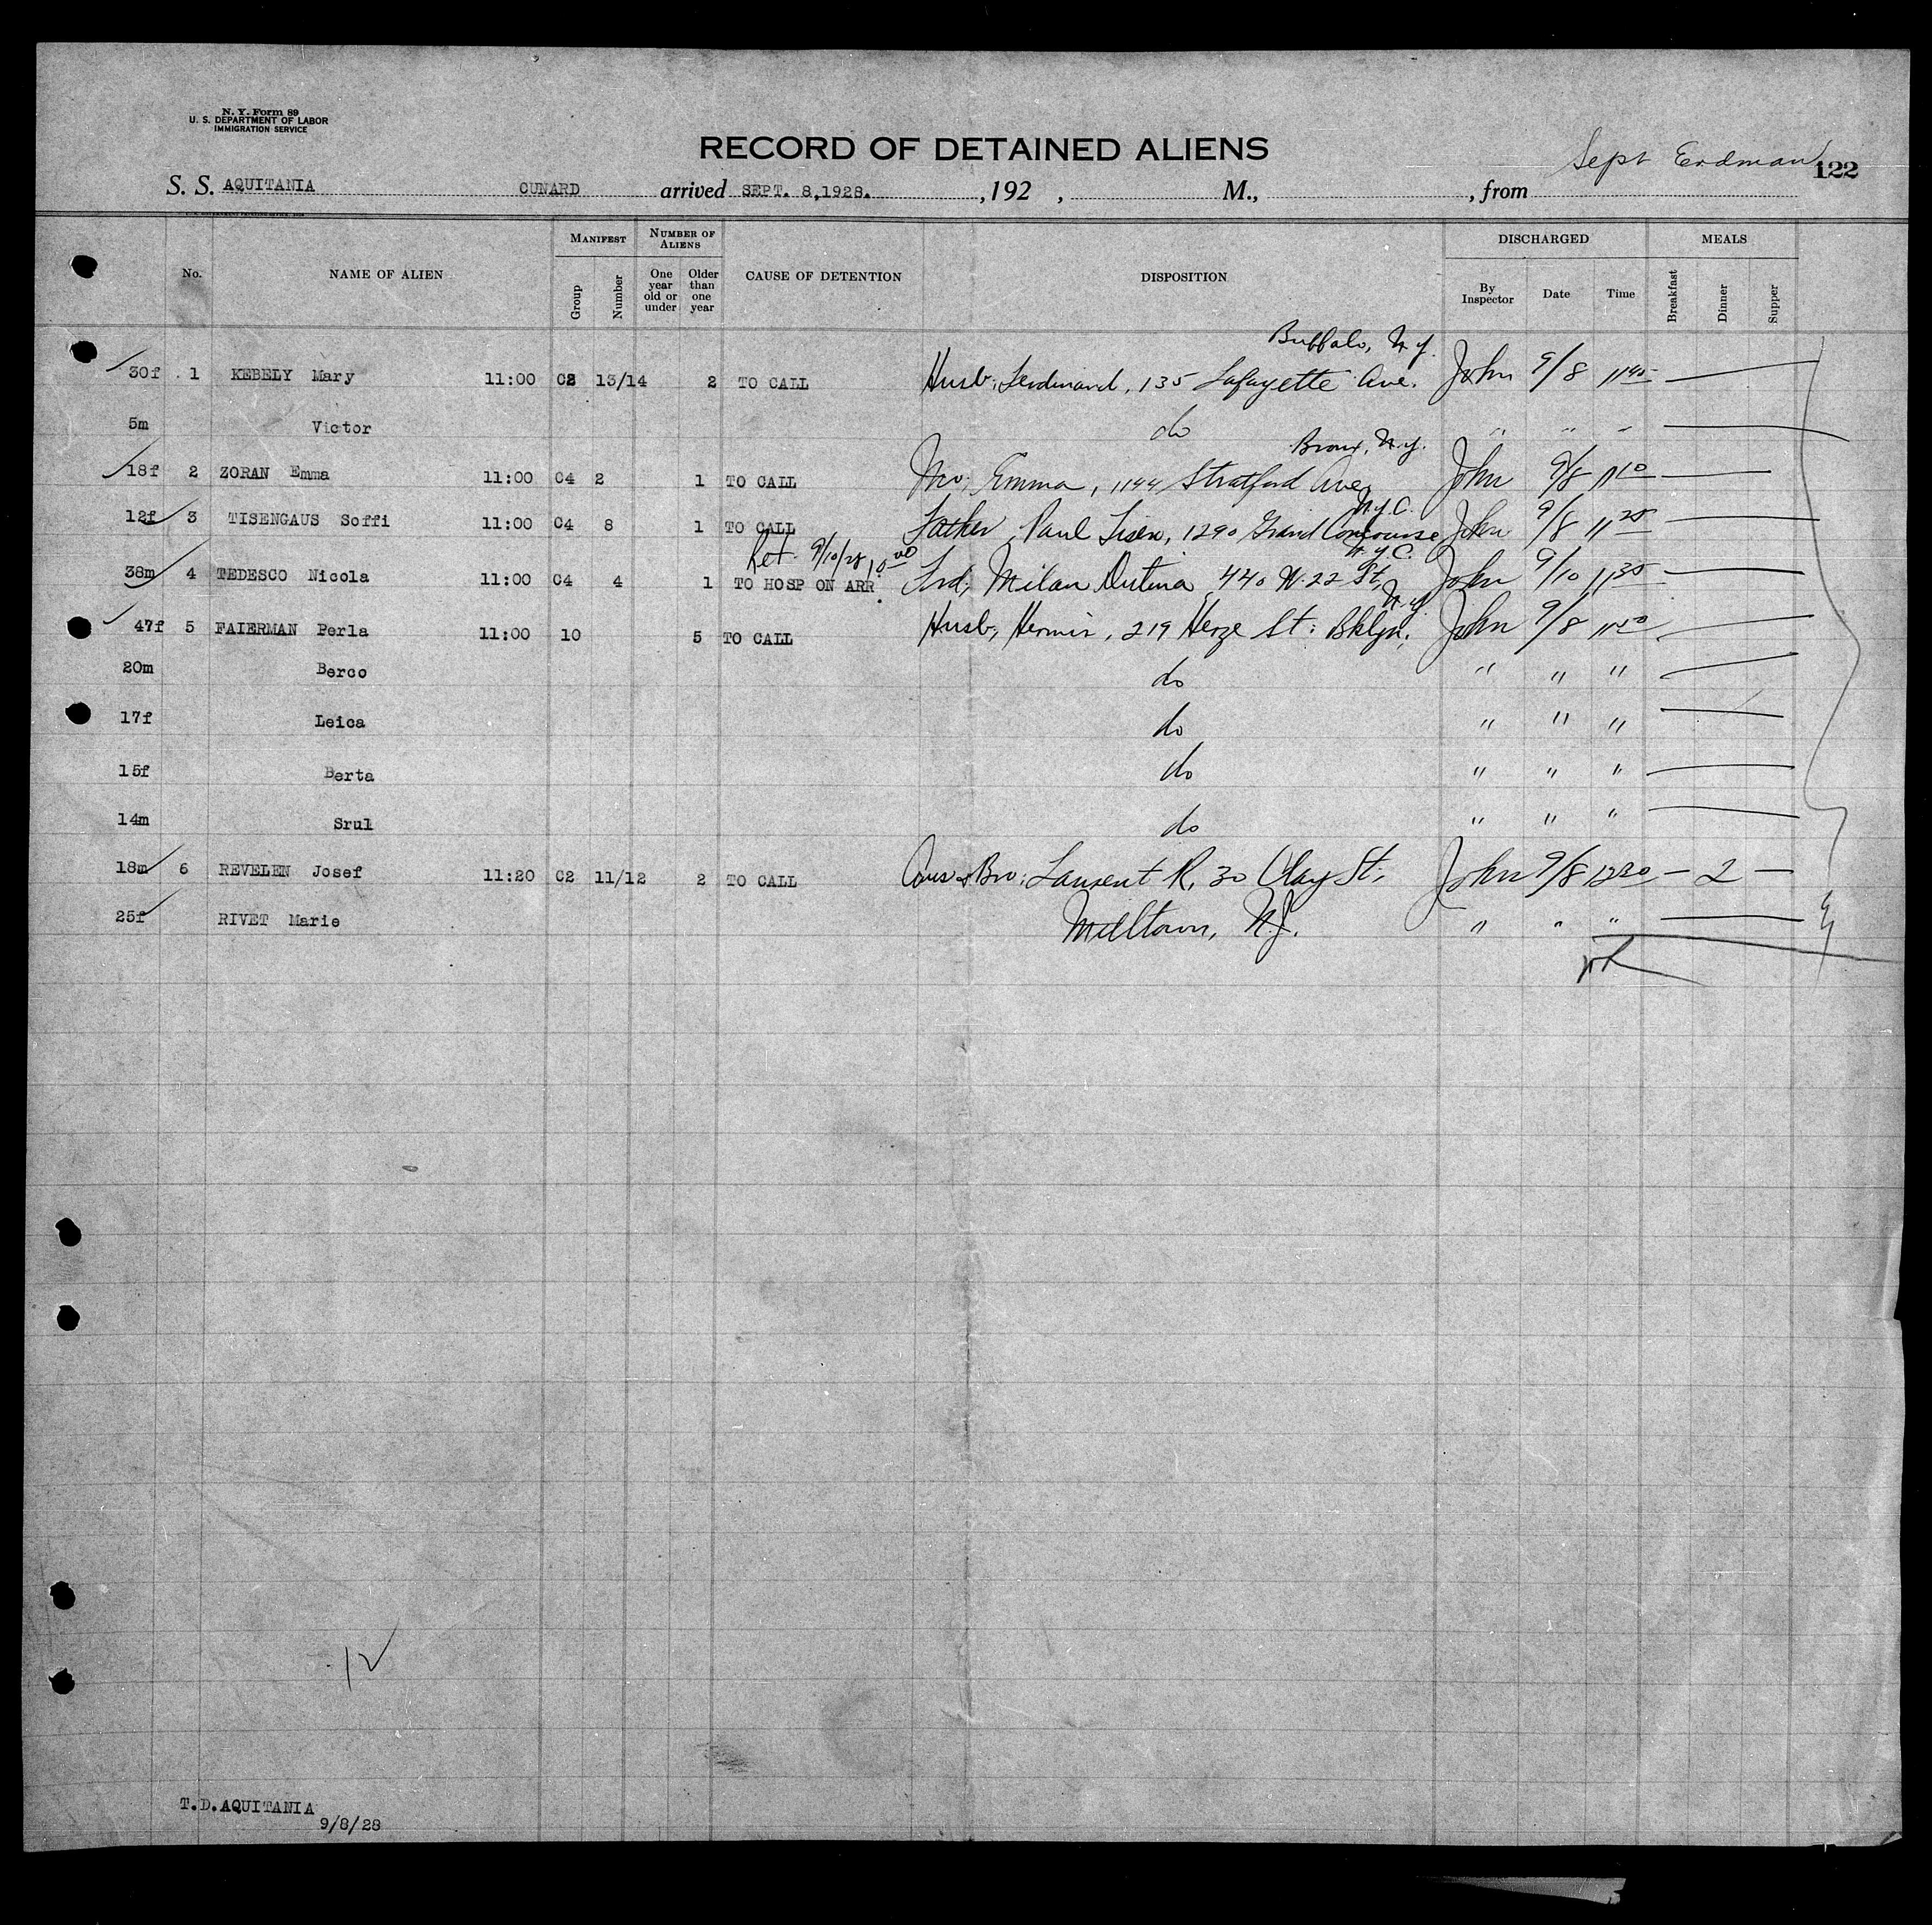 N. Y. Form 89
U. S. DEPARTMENT OF LABOR
IMMIGRATION SERVICE
RECORD OF DETAINED ALIENS
Sept Erdman 122
S. S. AQUITANIA CUNARD arrived SEPT. 8,1928. , 192 , M., , from
No. NAME OF ALIEN MANIFEST Group Number NUMBER OF ALIENS One year old or under Older than one year CAUSE OF DETENTION DISPOSITION DISCHARGED By Inspector Date Time MEALS Breakfast Dinner Supper
Buffalo, N.Y.
30f 1 KEBELY Mary 11:00 C2 13/14 2 TO CALL Husb; Ferdinand, 135 Lafayette Ave. John 9/8 11 45
5m Victor do " " "
Bronx, N.Y.
18f 2 ZORAN Emma 11:00 C4 2 1 TO CALL Mo; Emma, 1144 Stratford Ave John 9/8 11 10
N.Y.C.
12f 3 TISENGAUS Soffi 11:00 C4 8 1 TO CALL Father, Paul Tisen, 1290 Grand Concourse John 9/8 11 25
Ret. 9/10/28 10 00 N.Y.C.
38m 4 TEDESCO Nicola 11:00 C4 4 1 TO HOSP ON ARR. Frd; Milan 440 W. 22 St, John 9/10 11 35
N.Y.
47f 5 FAIERMAN Perla 11:00 10 5 TO CALL Husb; 219 St: Bklyn, John 9/8 11 40
20m Berco do " " "
17f Leica do " " "
15f Berta do " " "
14m Srul do " " "
18m 6 REVELEN Josef 11:20 C2 11/12 2 TO CALL Bro; Laurent R, 30 Clay St, John 9/8 12 30 - 2 -
25f RIVET Marie Milltown, N.J. " " "
12
T.D.AQUITANIA
9/8/28